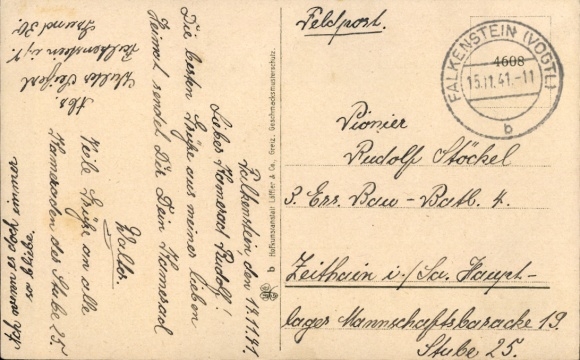 Feldpost.
FALKENSTEIN (VOGTL)
15.11.41.-11
b
4608
Pionier
Rudolf Stöckel
3. Ers. Bau-Batl. 4.
Zeithain i./Sa. Haupt-
lager Mannschaftsbaracke 19.
Stube 25.
b Hofkunstanstalt Löffler & Co., Greiz. Geschmacksmusterschutz.
Falkenstein den 14.11.41.
Lieber Kamerad Rudolf!
Die besten Grüße aus meiner lieben
Heimat sendet Dir Dein Kamerad
Walter.
Viele Grüße an alle
Kameraden der Stube 25.
Abs.
Walter Seifert
Falkenstein i./V.